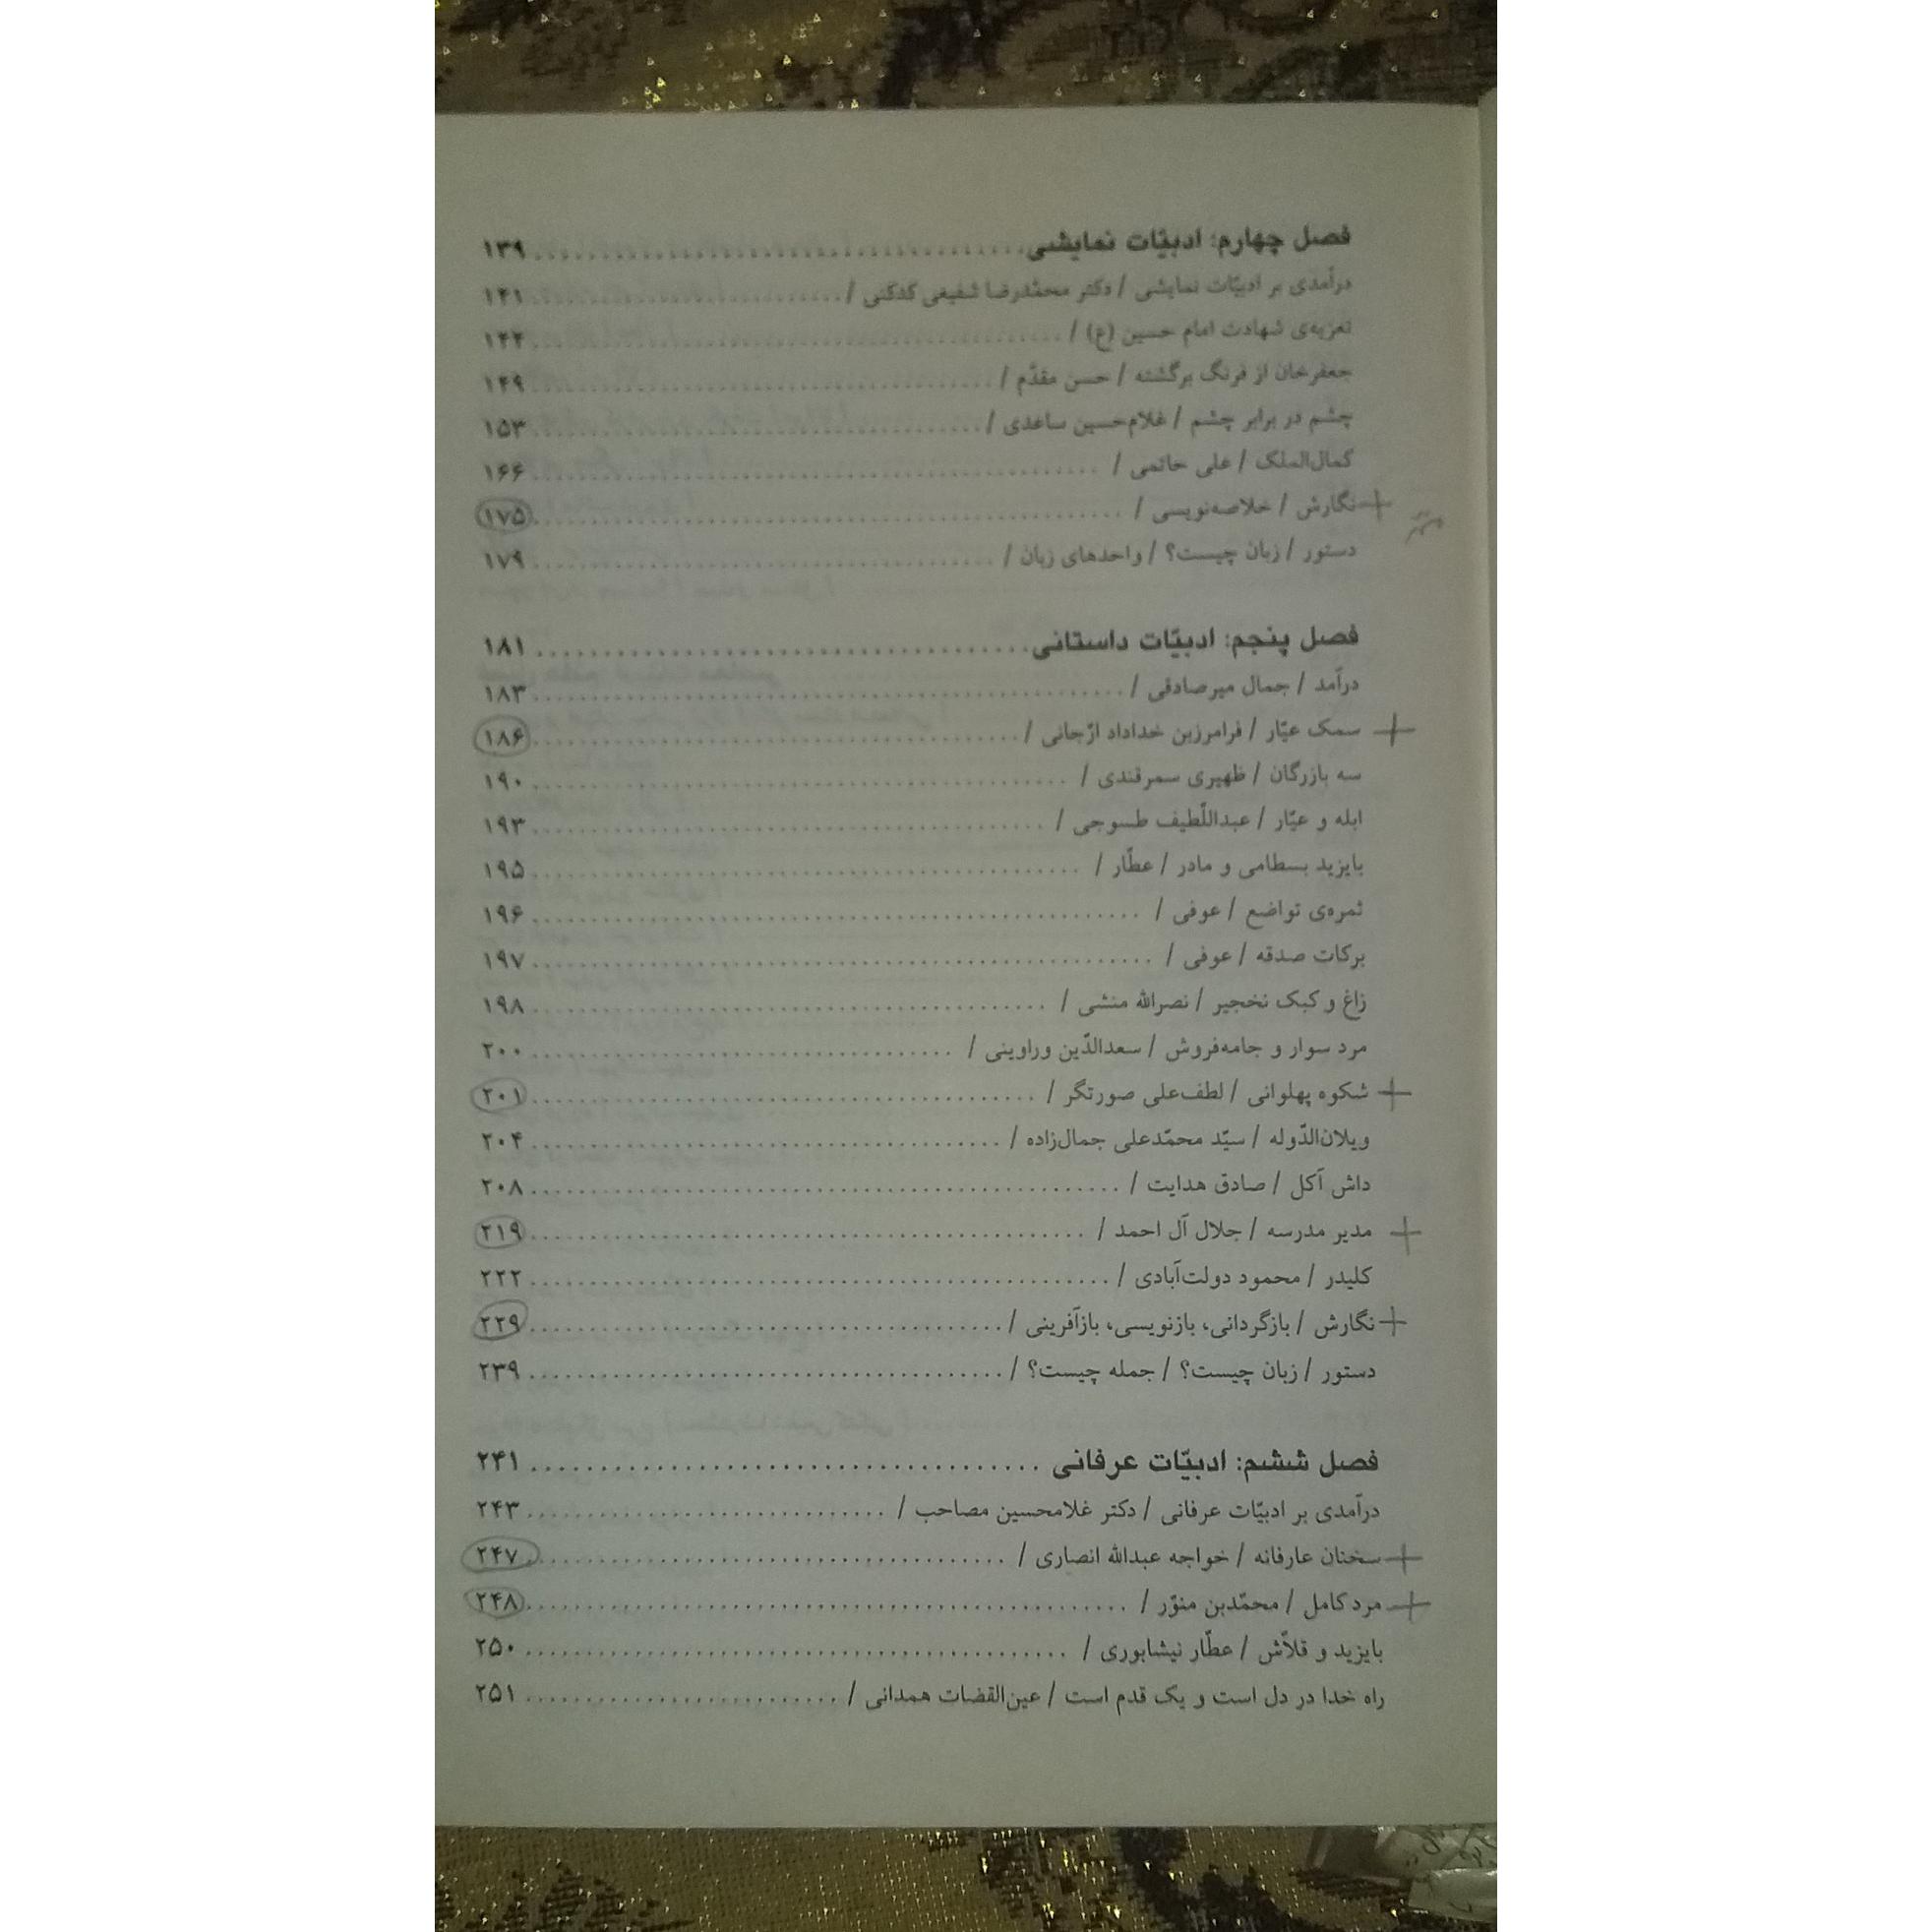 فصل چهارم: ادبیّات نمایشی ........ ۱۳۹
درآمدی بر ادبیّات نمایشی / دکتر محمّدرضا شفیعی کدکنی / ........ ۱۴۱
تعزیه‌ی شهادت امام حسین (ع) / ........ ۱۴۴
جعفرخان از فرنگ برگشته / حسن مقدّم / ........ ۱۴۹
چشم در برابر چشم / غلام‌حسین ساعدی / ........ ۱۵۳
کمال‌الملک / علی حاتمی / ........ ۱۶۶
نگارش / خلاصه‌نویسی / ........ ۱۷۵
دستور / زبان چیست؟ / واحدهای زبان / ........ ۱۷۹
فصل پنجم: ادبیّات داستانی ........ ۱۸۱
درآمد / جمال میرصادقی / ........ ۱۸۳
سمک عیّار / فرامرزبن خداداد ارّجانی / ........ ۱۸۶
سه بازرگان / ظهیری سمرقندی / ........ ۱۹۰
ابله و عیّار / عبداللّطیف طسوجی / ........ ۱۹۳
بایزید بسطامی و مادر / عطّار / ........ ۱۹۵
ثمره‌ی تواضع / عوفی / ........ ۱۹۶
برکات صدقه / عوفی / ........ ۱۹۷
زاغ و کبک نخجیر / نصرالله منشی / ........ ۱۹۸
مرد سوار و جامه‌فروش / سعدالدّین وراوینی / ........ ۲۰۰
شکوه پهلوانی / لطف‌علی صورتگر / ........ ۲۰۱
ویلان‌الدّوله / سیّد محمّدعلی جمال‌زاده / ........ ۲۰۴
داش آکل / صادق هدایت / ........ ۲۰۸
مدیر مدرسه / جلال آل احمد / ........ ۲۱۹
کلیدر / محمود دولت‌آبادی / ........ ۲۲۲
نگارش / بازگردانی، بازنویسی، بازآفرینی / ........ ۲۲۹
دستور / زبان چیست؟ / جمله چیست؟ / ........ ۲۳۹
فصل ششم: ادبیّات عرفانی ........ ۲۴۱
درآمدی بر ادبیّات عرفانی / دکتر غلامحسین مصاحب / ........ ۲۴۳
سخنان عارفانه / خواجه عبدالله انصاری / ........ ۲۴۷
مرد کامل / محمّدبن منوّر / ........ ۲۴۸
بایزید و قلاّش / عطّار نیشابوری / ........ ۲۵۰
راه خدا در دل است و یک قدم است / عین‌القضات همدانی / ........ ۲۵۱